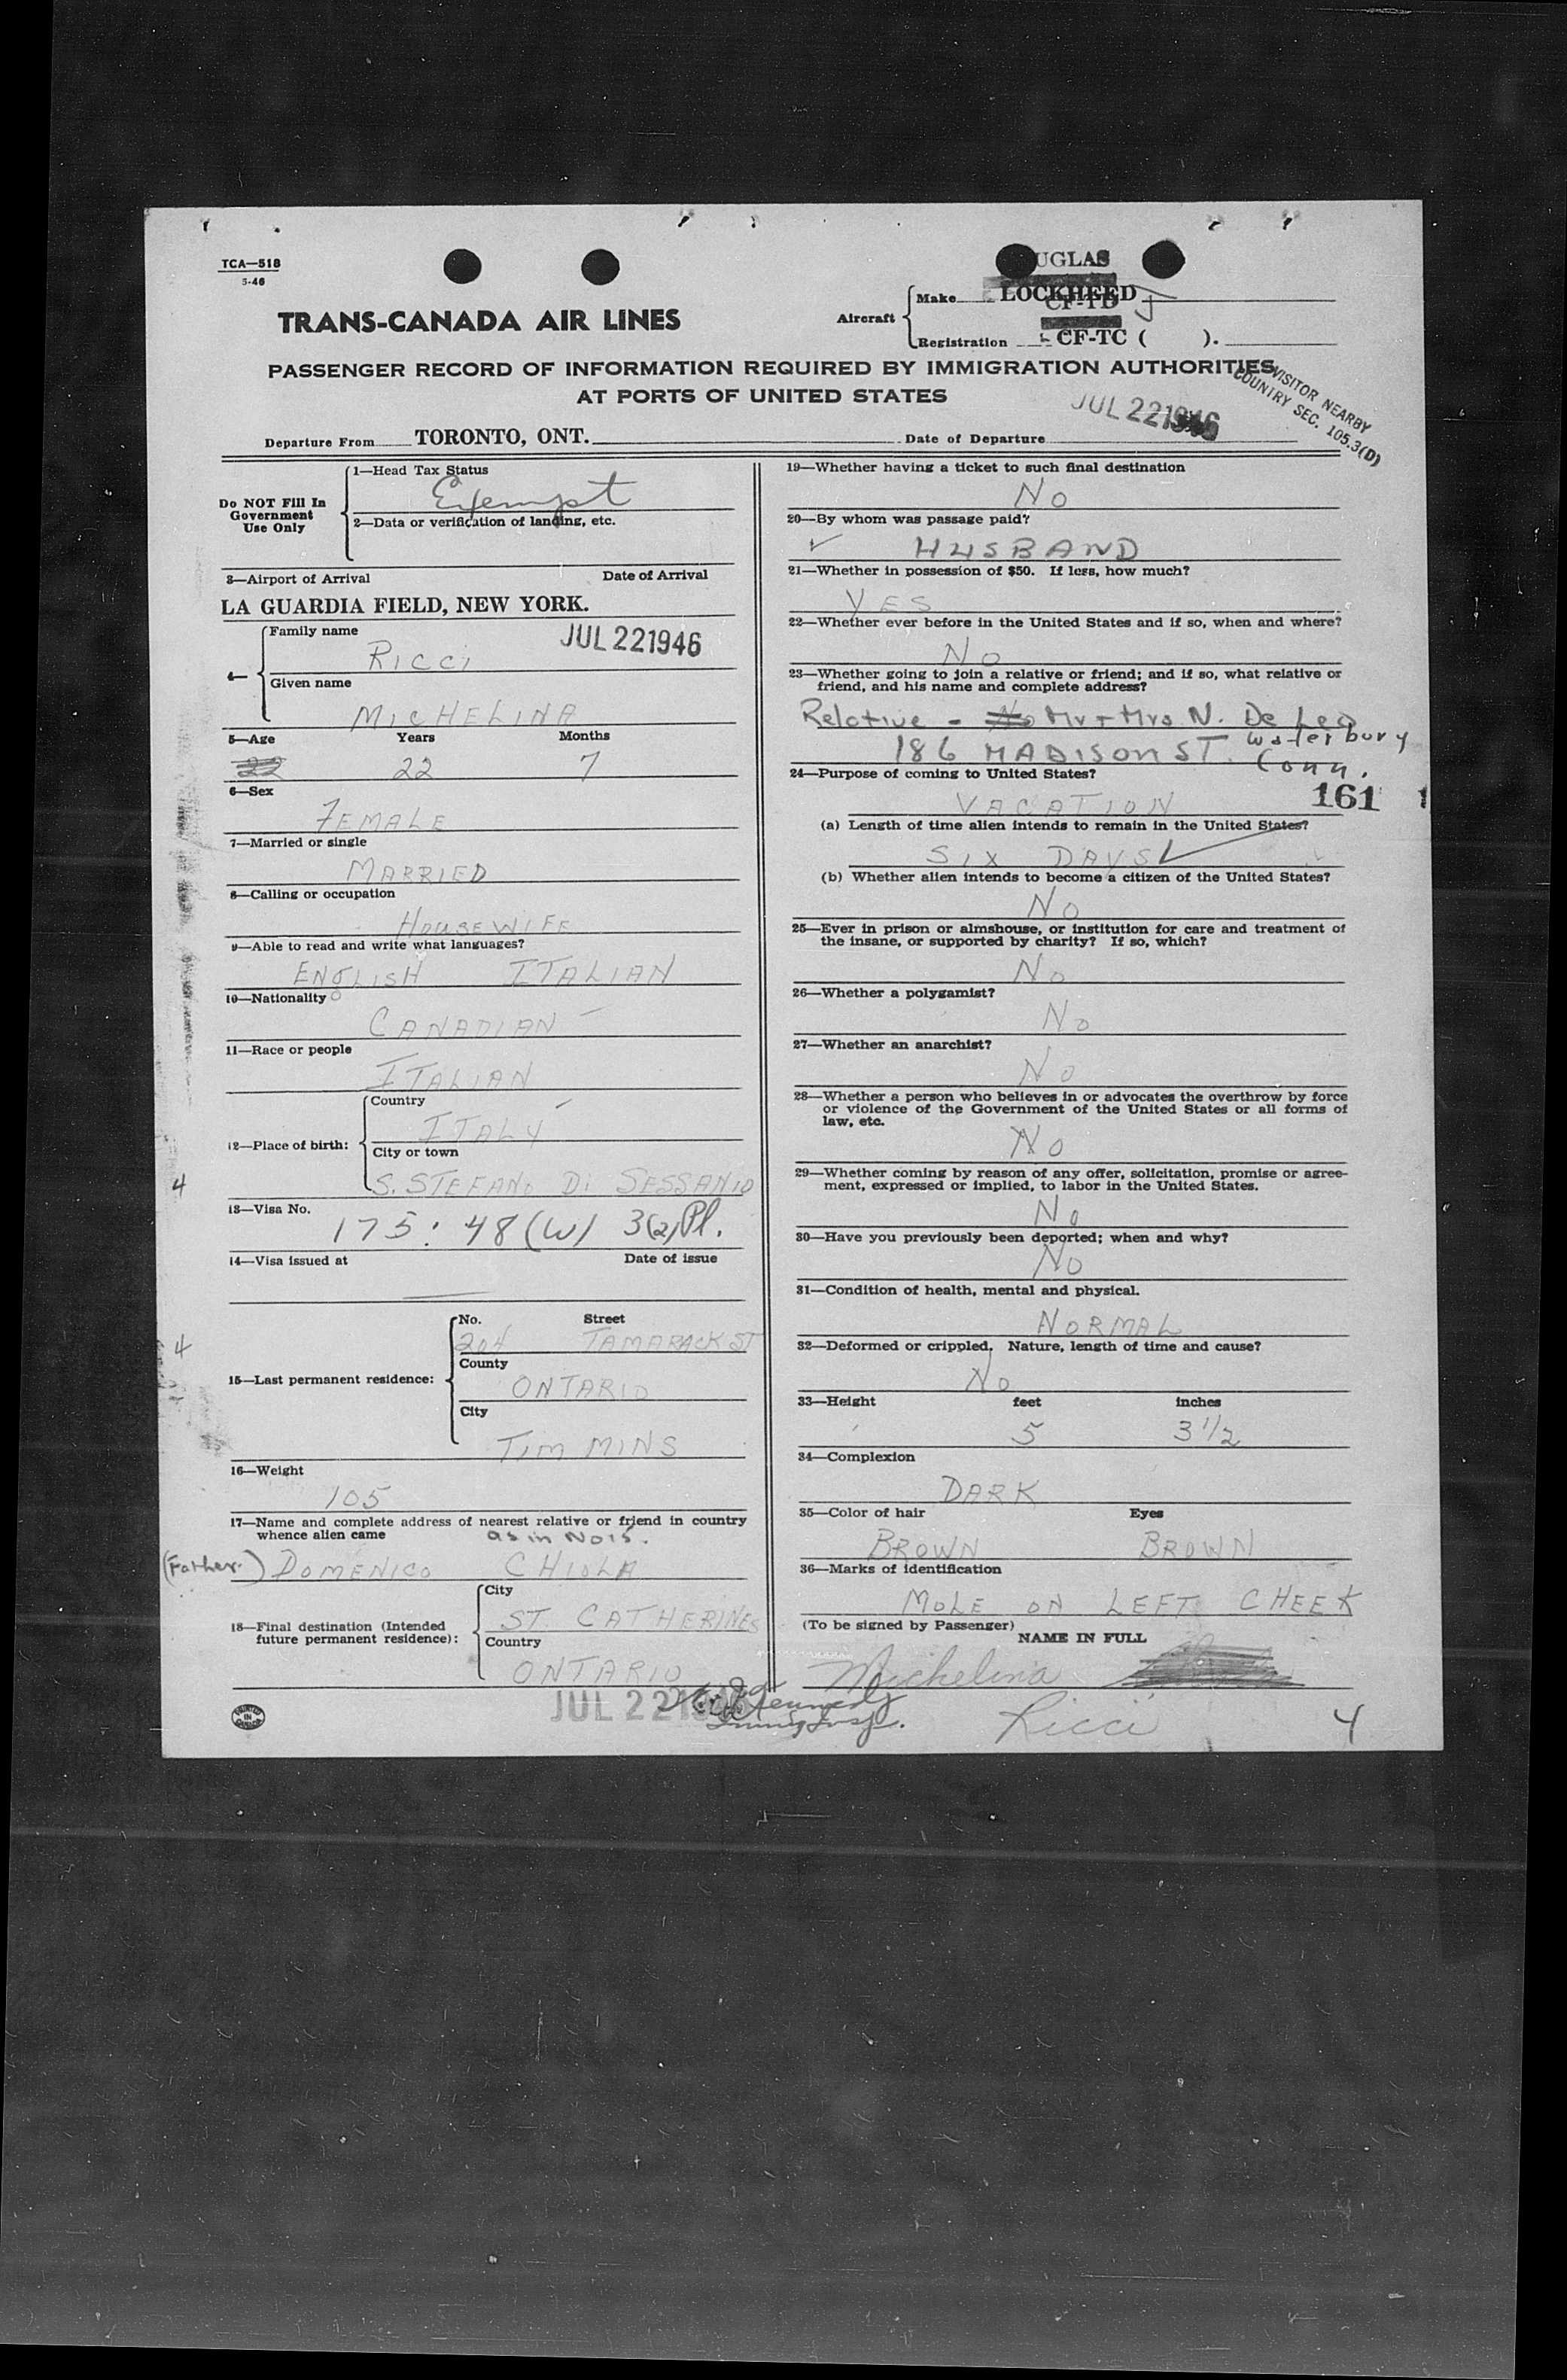 TCA—518
5-46
UGLAS
Aircraft
Make LOCKHEED
CF-TD J
Registration CF-TC ( ).
TRANS-CANADA AIR LINES
PASSENGER RECORD OF INFORMATION REQUIRED BY IMMIGRATION AUTHORITIES
AT PORTS OF UNITED STATES
VISITOR NEARBY
COUNTRY SEC. 105.3(D)
JUL 22 1946
Departure From TORONTO, ONT. Date of Departure
Do NOT Fill In
Government
Use Only
1—Head Tax Status
Exempt
2—Data or verification of landing, etc.
3—Airport of Arrival Date of Arrival
LA GUARDIA FIELD, NEW YORK.
JUL 22 1946
4—
Family name
RICCI
Given name
MICHELINA
5—Age Years Months
22 22 7
6—Sex
FEMALE
7—Married or single
MARRIED
8—Calling or occupation
HOUSEWIFE
9—Able to read and write what languages?
ENGLISH ITALIAN
10—Nationality
CANADIAN
11—Race or people
ITALIAN
12—Place of birth:
Country
ITALY
City or town
S. STEFANO DI SESSANIO
4
13—Visa No.
175: 48 (W) 3(2) Pl.
14—Visa issued at Date of issue
15—Last permanent residence:
No. Street
204 TAMARACK ST
County
ONTARIO
City
TIMMINS
4
16—Weight
105
17—Name and complete address of nearest relative or friend in country
whence alien came as in No 15.
(Father.) DOMENICO CHIOLA
18—Final destination (Intended
future permanent residence):
City
ST. CATHERINES
Country
ONTARIO
JUL 22 1946
Kennedy
PRINTED
IN
CANADA
19—Whether having a ticket to such final destination
NO
20—By whom was passage paid?
HUSBAND
21—Whether in possession of $50. If less, how much?
YES
22—Whether ever before in the United States and if so, when and where?
NO
23—Whether going to join a relative or friend; and if so, what relative or
friend, and his name and complete address?
Relative - No Mr + Mrs N. De Leo
186 MADISON ST. Waterbury
Conn.
24—Purpose of coming to United States?
VACATION
161
(a) Length of time alien intends to remain in the United States?
SIX DAYS
(b) Whether alien intends to become a citizen of the United States?
NO
25—Ever in prison or almshouse, or institution for care and treatment of
the insane, or supported by charity? If so, which?
NO
26—Whether a polygamist?
NO
27—Whether an anarchist?
NO
28—Whether a person who believes in or advocates the overthrow by force
or violence of the Government of the United States or all forms of
law, etc.
NO
29—Whether coming by reason of any offer, solicitation, promise or agree-
ment, expressed or implied, to labor in the United States.
NO
30—Have you previously been deported; when and why?
NO
31—Condition of health, mental and physical.
NORMAL
32—Deformed or crippled. Nature, length of time and cause?
NO
33—Height feet inches
5 3 1/2
34—Complexion
DARK
35—Color of hair Eyes
BROWN BROWN
36—Marks of identification
MOLE ON LEFT CHEEK
(To be signed by Passenger)
NAME IN FULL
Michelina
Ricci
4